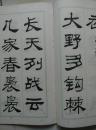 大野多钩棘
长天列战云
几家春袅袅